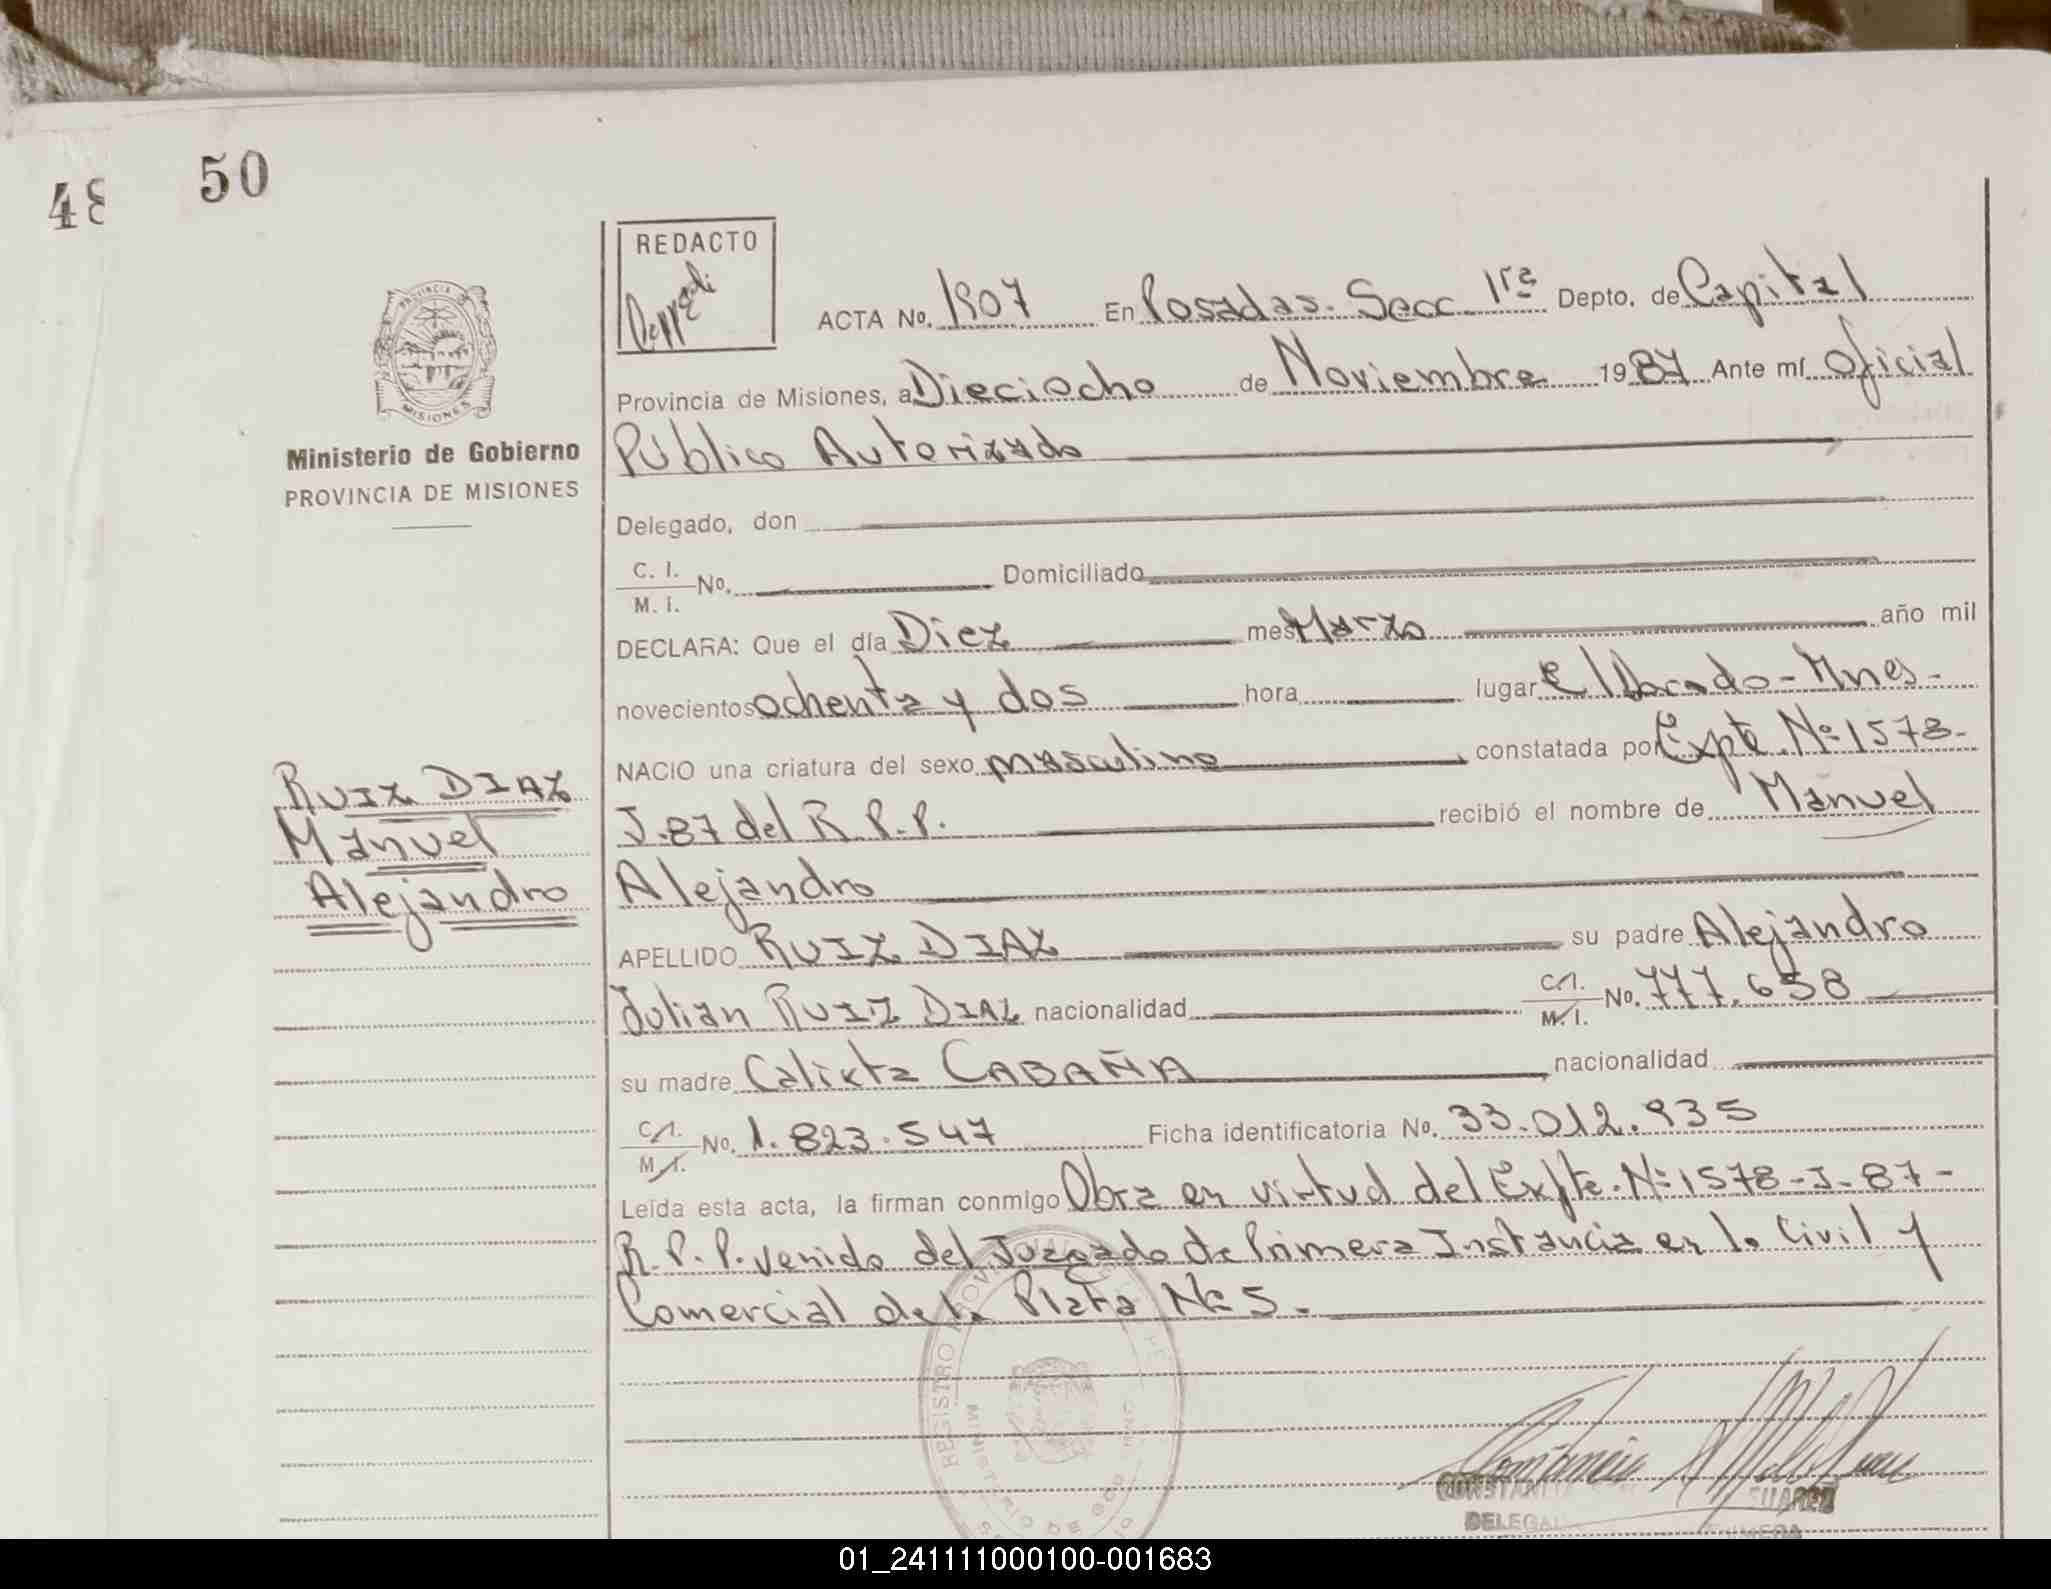 48
50
REDACTO
PROVINCIA DE
MISIONES
Ministerio de Gobierno
PROVINCIA DE MISIONES
ACTA No. 1907 En Posadas. Secc. 1ra Depto. de Capital
Provincia de Misiones, a Dieciocho de Noviembre 1987 Ante mí Oficial
Público Autorizado
Delegado, don
C. I.
M. I. No. Domiciliado
DECLARA: Que el día Diez mes Marzo año mil
novecientos ochenta y dos hora lugar El dorado - Mnes -
NACIO una criatura del sexo masculino constatada por Expte. Nº 1578-
J-87 del R.P.P. recibió el nombre de Manuel
Alejandro
APELLIDO RUIZ DIAZ su padre Alejandro
Julian RUIZ DIAZ nacionalidad C.I. M.I. No. 777.658
su madre Calixta CABAÑA nacionalidad
C.I. M.I. No. 1.823.547 Ficha identificatoria No. 33.012.935
Leída esta acta, la firman conmigo Obra en virtud del Expte. Nº 1578-J-87-
R.P.P. venido del Juzgado de Primera Instancia en lo Civil y
Comercial de la Plata Nº 5.
RUIZ DIAZ
Manuel
Alejandro
REGISTRO PROVINCIAL DE
MINISTERIO DE GOB
SUAREZ
01_241111000100-001683